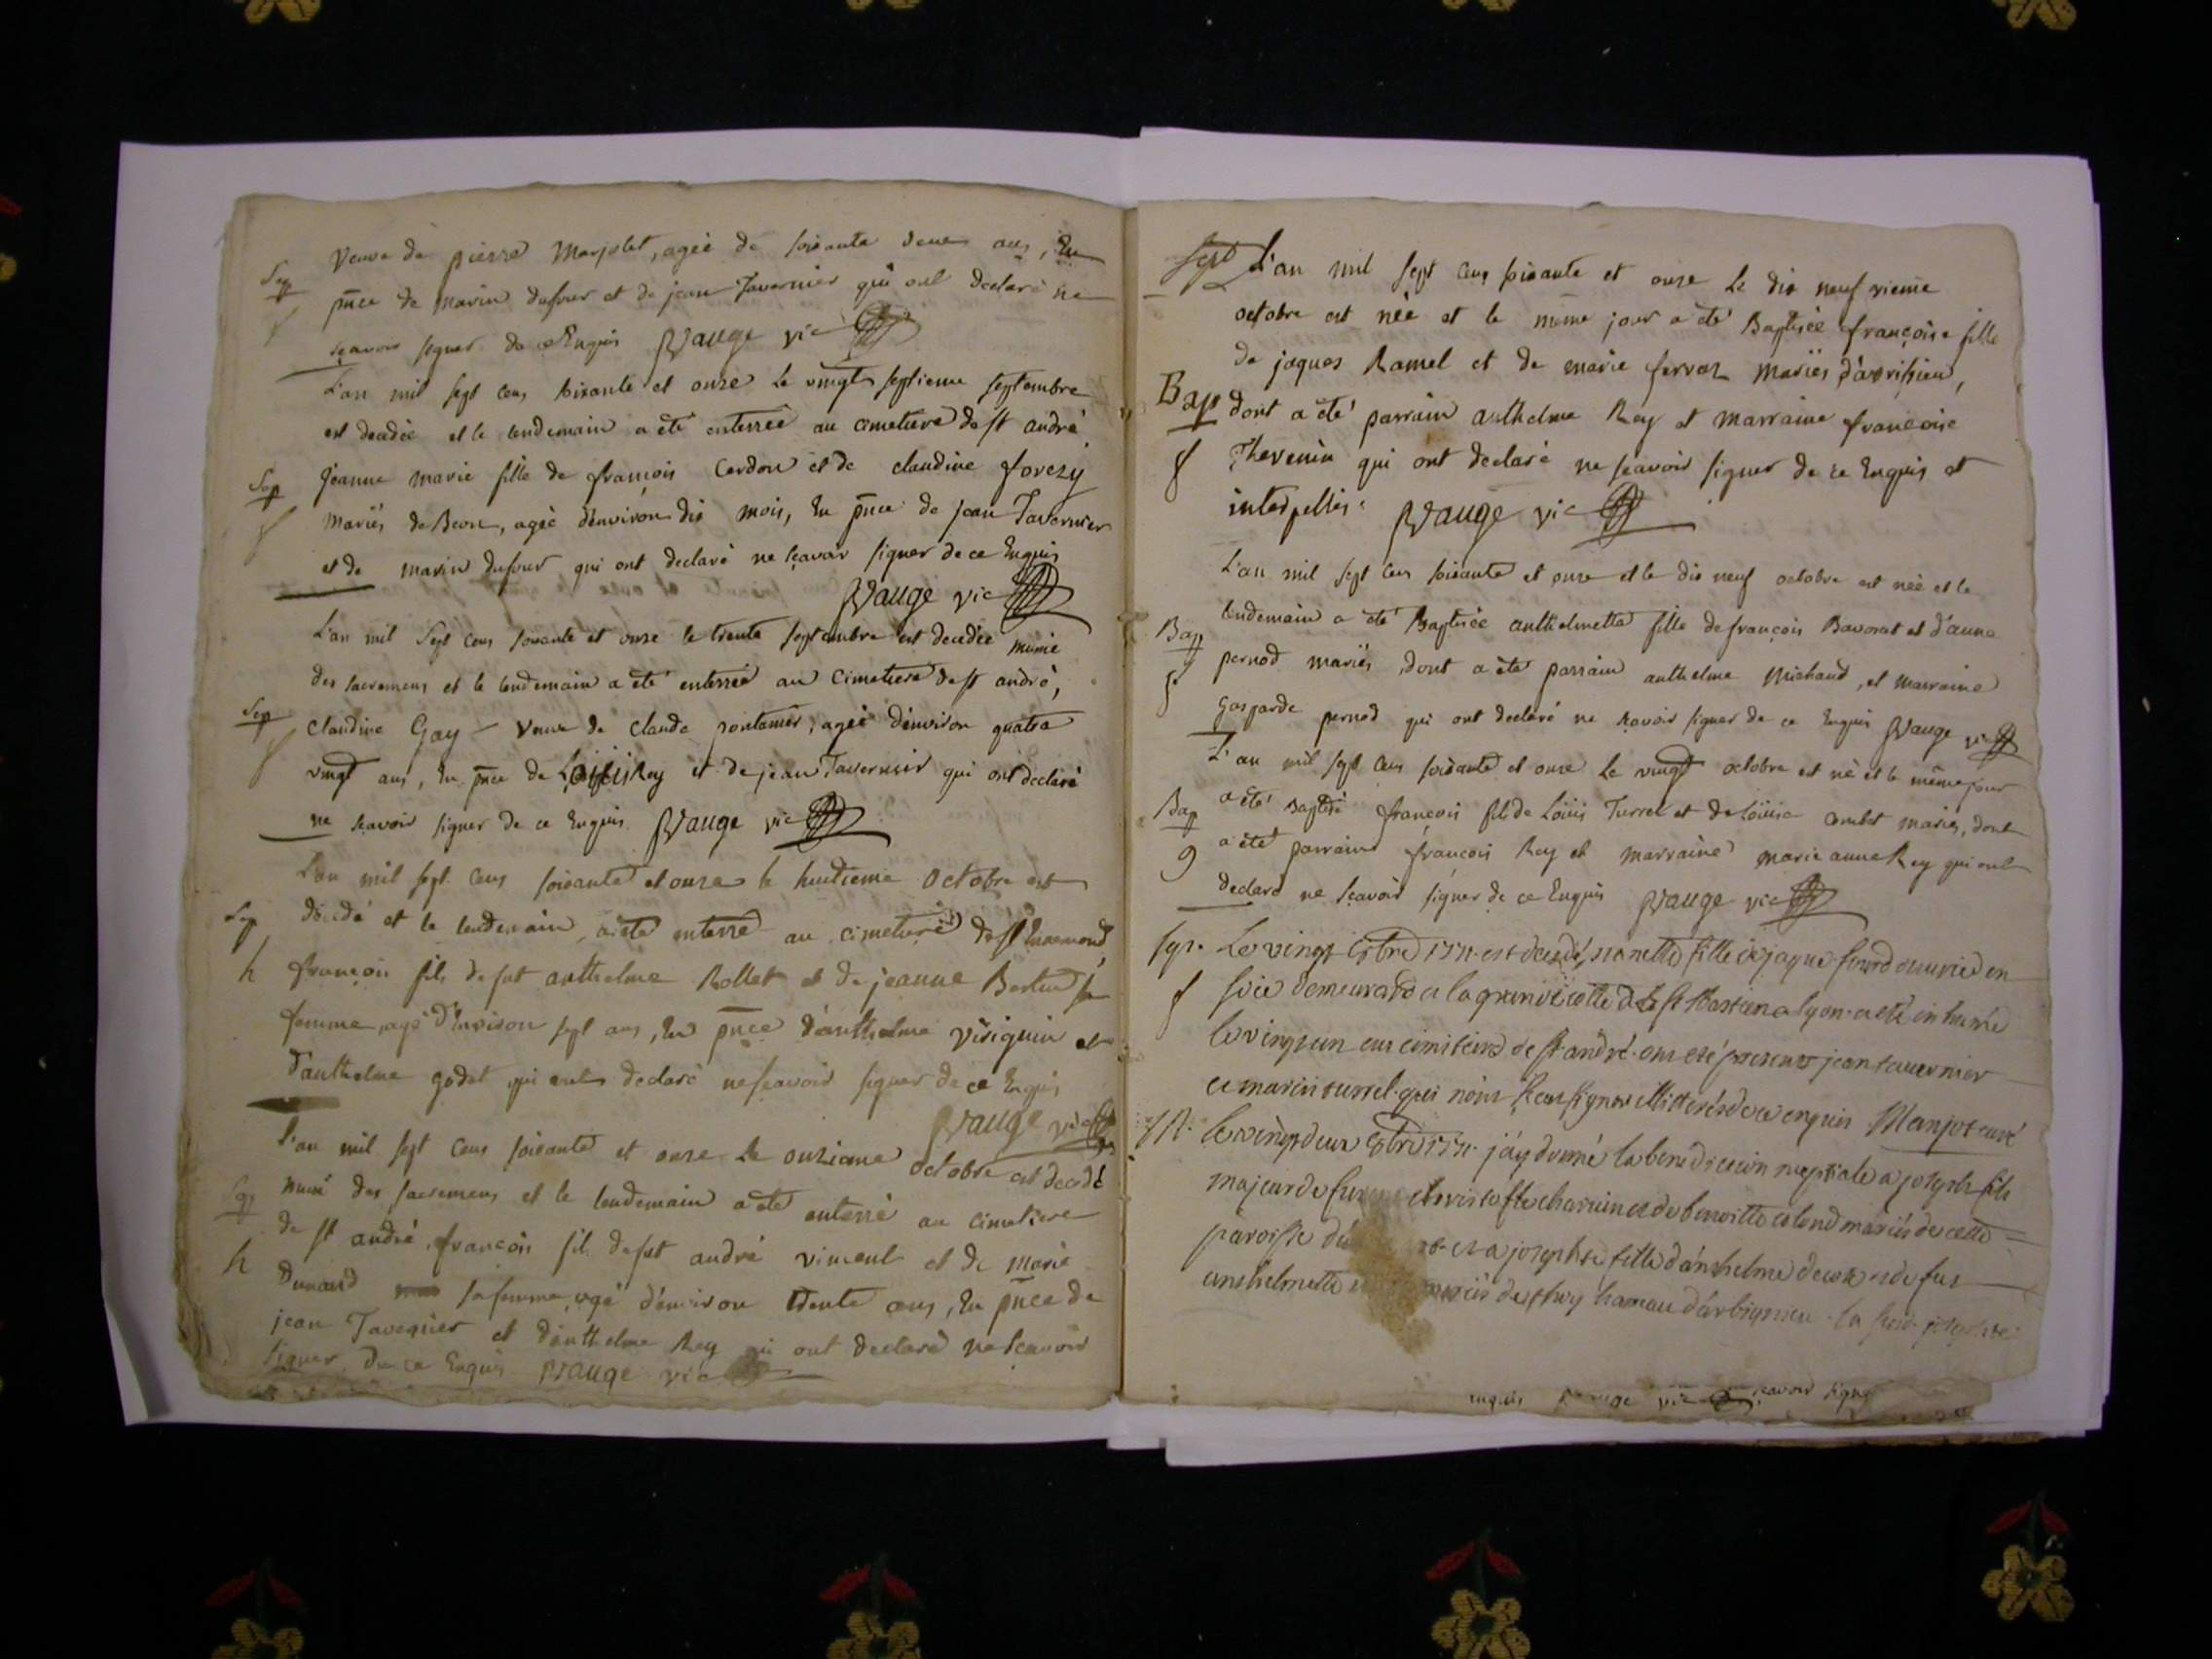 Veuve de pierre Marjolet, agée de soixante deux ans, En
Sep
pnce de marin dufour et de jean Tavernier qui ont declaré ne
sçavoir signer de ce Enquis Vauge vic
L'an mil sept cens soixante et onze le vingt septieme septembre
est decedée et le lendemain a été enterrée au cimetiere de st andré
Sep
jeanne marie fille de françois Cardon et de claudine forezy
mariés de Beon, agée d'environ dix mois, En pnce de jean Tavernier
et de marin dufour qui ont declaré ne sçavoir signer de ce Enquis
Vauge vic
L'an mil Sept cens soixante et onze le trente septembre est decedée munie
des sacremens et le lendemain a été enterrée au Cimetiere de st andré,
Sep
Claudine Gay veuve de Claude pontanier, agée d'environ quatre
vingt ans, En pnce de Rey et de jean Tavernier qui ont declaré
ne sçavoir signer de ce Enquis Vauge vic
L'an mil sept cens soixante et onze le huitieme Octobre est
Sep
décédé et le lendemain a été enterré au cimetiere de st Ennemond
h
françois fils de fut anthelme Rollet et de jeanne sa
femme, agé d'Environ sept ans, En pnce d'anthelme et
d'anthelme godet qui ont declaré ne sçavoir signer de ce Enquis
Vauge vic
L'an mil sept cens soixante et onze Le onzieme octobre est decedé
Sep
muni des sacremens et le lendemain a été enterré au cimetiere
de st andré, françois fils de fut andré viment et de marie
h
Dunand sa femme, agé d'environ trente ans, En pnce de
jean Tavernier et d'anthelme Rey qui ont declaré ne sçavoir
signer de ce Enquis Vauge vic
L'an mil sept cens soixante et onze Le dix neuf vieme
octobre est née et le même jour a été Baptisée françoise fille
de jaques Ramel et de marie mariés
Bap
dont a été parrain anthelme Rey et marraine françoise
f
Thevenin qui ont declaré ne sçavoir signer de ce Enquis et
interpellés. Vauge vic
L'an mil sept cens soixante et onze et le dix neuf octobre est née et le
lendemain a été Baptisée anthelmette fille de françois Bavorat et d'anne
Bap
pernod mariés, dont a été parrain anthelme Michaud, et marraine
f
gasparde pernod qui ont declaré ne sçavoir signer de ce Enquis Vauge vic
L'an mil sept cens soixante et onze Le vingt octobre est né et le même jour
Bap
a été baptisé françois fils de Loüis Turrel et de loüise combet mariés, dont
g
a été parrain françois Rey et marraine marie anne Rey qui ont
declaré ne sçavoir signer de ce Enquis Vauge vic
Le vingt 1771 est decedé, nanette fille de jaque ouvrier en
f
soie demeurant a la grande cotte de st a lyon a été inhumée
le vingt un au cimitiere de st andré ont été presents jean tavernier
et marin turrel qui n'ont sceu signer illitterés de ce enquis Manjot curé
le vingt deux 1771 j'ay donné la benediction nuptiale a joseph fils
majeur de christofle et de benoitte mariés de cette
paroisse et a josephte fille d'anthelme et de fut
anthelmette mariés de hameau d'arbignieu josephte
enquis vic sçavoir signer